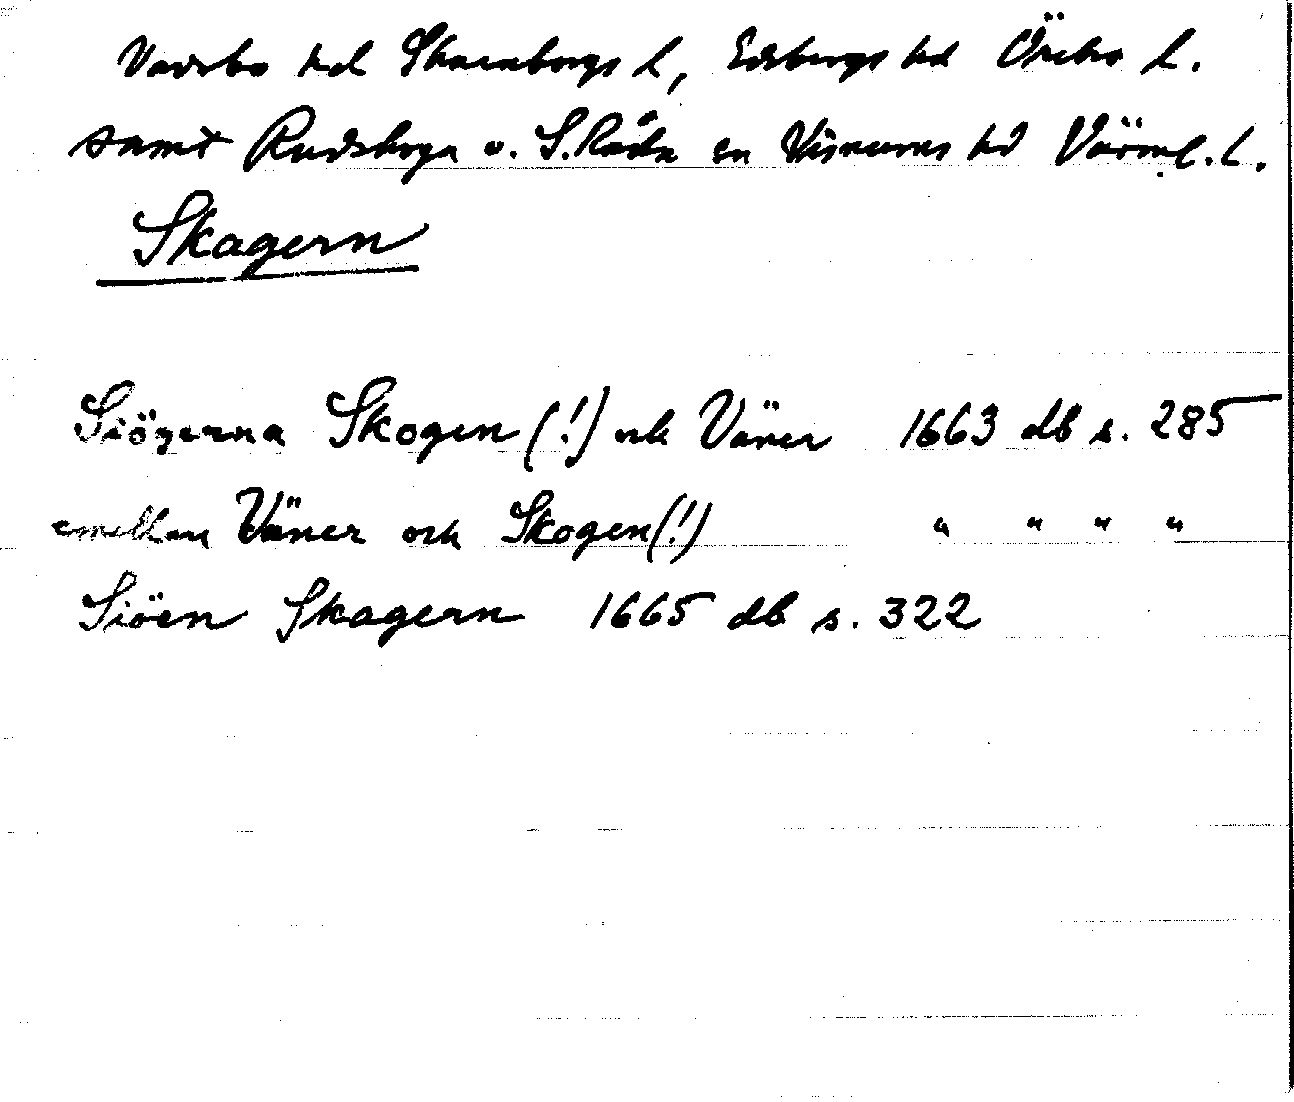 Vadsbo hd Skaraborgs l, Edsbergs hd Örebro l.
samt Rudskoga o. S. Råda sn Visnums hd Värml. l.
Skagern
Siögerna Skogen (!) och Väner 1663 db s. 285
emellan Väner och Skogen (!) " " " "
Siöen Skagern 1665 db s. 322